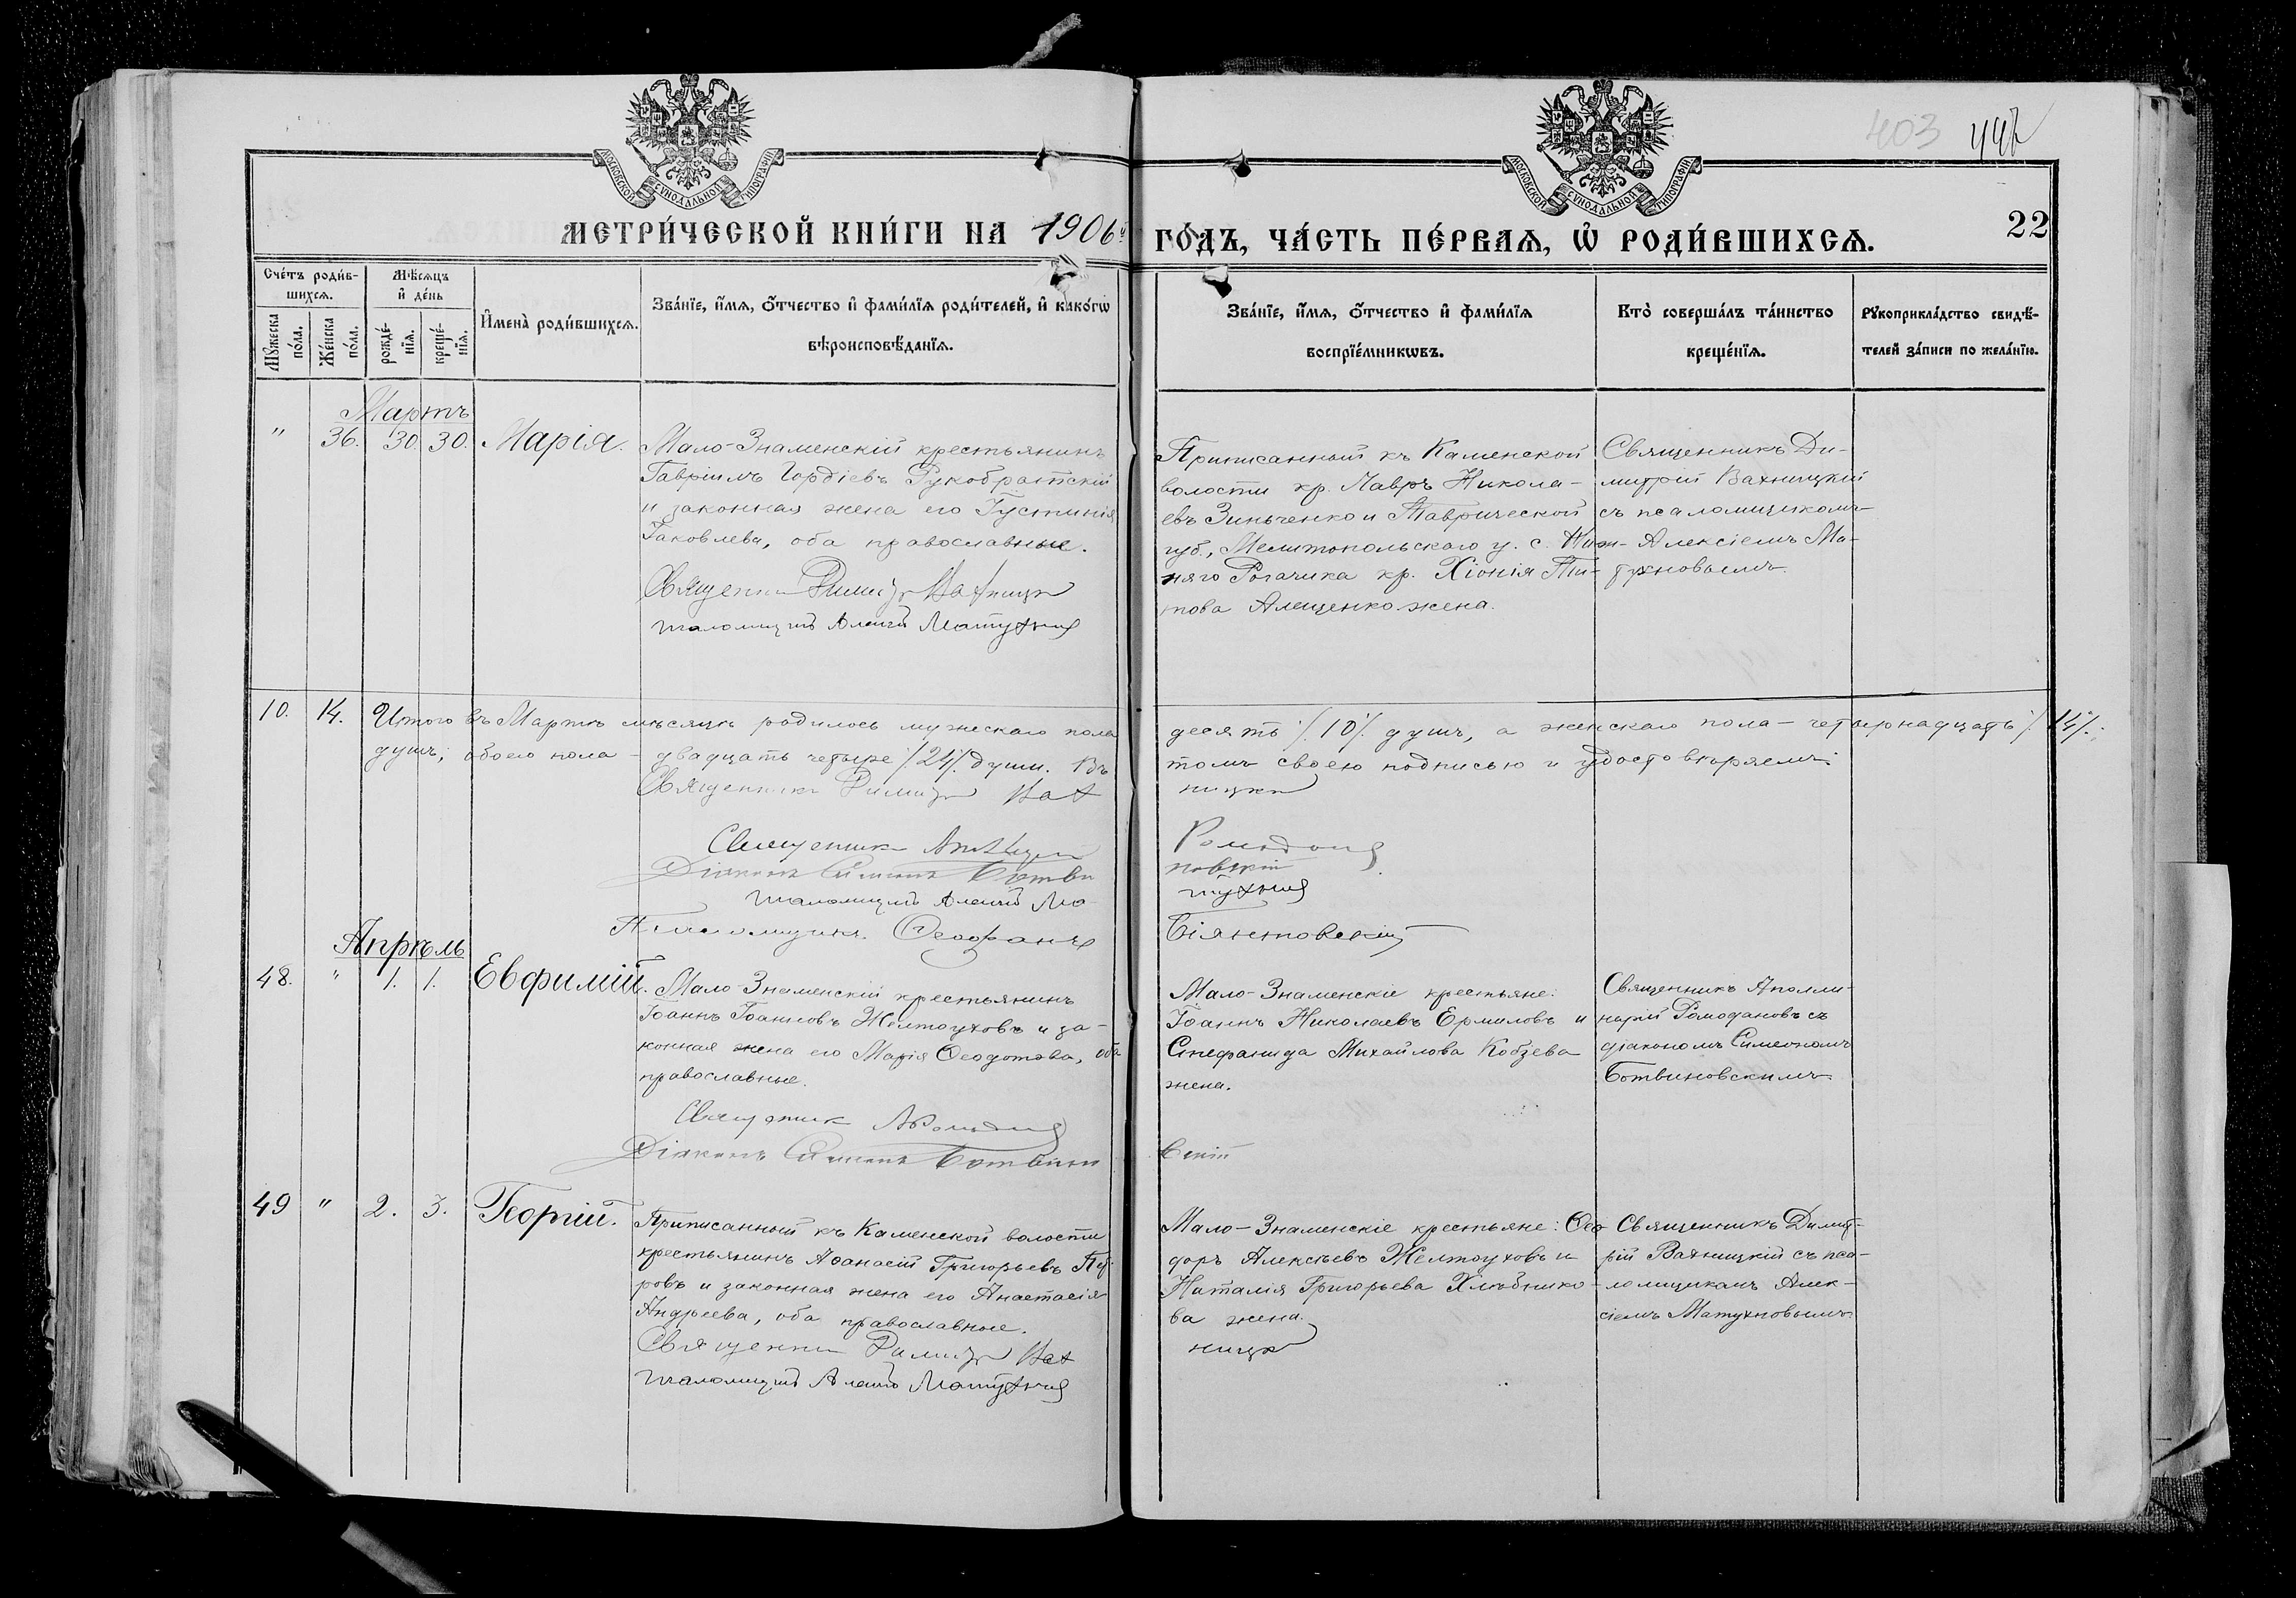 403 442
МОСКОВСКОЙ СУНОДАЛЬНОЙ ТИПОГРАФІИ
МОСКОВСКОЙ СУНОДАЛЬНОЙ ТИПОГРАФІИ
МЕТРИ́ЧЕСКОЙ КНИ́ГИ НА 1906й ГО́ДЪ, ЧА́СТЬ ПЕ́РВАѦ, Ѡ҆ РОДИ́ВШИХСѦ. 22
Сче́тъ роди́в-
шихсѧ.
Мꙋ́жеска по́ла.
Же́нска по́ла.
Мѣ́сѧцъ
и҆ де́нь
рожде́-
нїѧ.
креще́-
нїѧ.
И҆мена̀ роди́вшихсѧ.
Зва́нїе, и҆́мѧ, ѻ҆́тчество и҆ фами́лїѧ роди́телей, и҆ како́гѡ
вѣроисповѣ́данїѧ.
Зва́нїе, и҆́мѧ, ѻ҆́тчество и҆ фами́лїѧ
воспрїе́мникѡвъ.
Кто̀ соверша́лъ та́инство
креще́нїѧ.
Рꙋкоприкла́дство свидѣ́-
телей за́писи по жела́нїю.
Мартъ
" 36. 30. 30. Марія.
Мало-Знаменскій крестьянинъ
Гавріилъ Гордіевъ Рукобратскій
и законная жена его Іустинія
Іаковлева, оба православные.
Священникъ Димитр Вахницк
Псаломщикъ Алексѣй Матухнов
Приписанный къ Каменской
волости кр. Лавръ Никола-
евъ Зинченко и Таврической
губ., Мелитопольскаго у. с. Ниж-
няго Рогачика кр. Хіонія Ти-
това Алещенко жена.
Священникъ Ди-
митрій Вахницкій
съ псаломщикомъ
Алексіемъ Ма-
тухновымъ.
10. 14. Итого въ Мартѣ мѣсяцѣ родилось мужескаго пола десять /.10/. душъ, а женскаго пола – четырнадцать /.14/.
душъ; обоего пола – двадцать четыре /.24/. души. Въ томъ своею подписью и удостовѣряемъ:
Священникъ Димитр Вахницкі
Священникъ Романов
Діаконъ Симеонъ Ботвиновскій
Псаломщикъ Алексѣй Матухнов
Псаломщикъ Ѳеофанъ Біянтовскій
Апрѣль
48. " 1. 1. Евфимій.
Мало-Знаменскій крестьянинъ
Іоаннъ Іоанновъ Желтоуховъ и за-
конная жена его Марія Ѳеодотова, оба
православные.
Священник
Діаконъ Симеонъ Ботвиновскій
Мало-Знаменскіе крестьяне:
Іоаннъ Николаевъ Ермиловъ и
Стефанида Михайлова Кобзева
жена.
Священникъ Аполли-
нарій Ромодановъ съ
діакономъ Симеономъ
Ботвиновскимъ.
49 " 2. 3. Георгій.
Приписанный къ Каменской волости
крестьянинъ Аѳанасій Григорьевъ Пу-
ровъ и законная жена его Анастасія
Андреева, оба православные.
Священник Димитр Вахницк
Псаломщикъ Алексѣй Матухнов
Мало-Знаменскіе крестьяне: Ѳео-
доръ Алексѣевъ Желтоуховъ и
Наталія Григорьева Хлѣбнико-
ва жена.
Священникъ Димит-
рій Вахницкій съ пса-
ломщикомъ Алек-
сіемъ Матухновымъ.